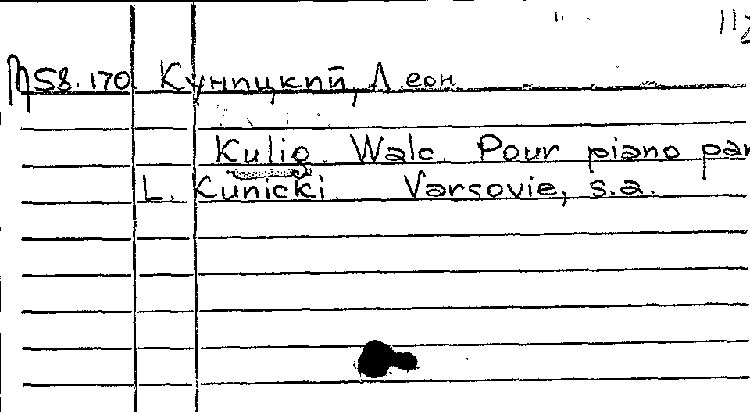 П58.170 Куницкий, Леон
Kulig. Walc. Pour piano par
L. Cunicki Varsovie, s.a.